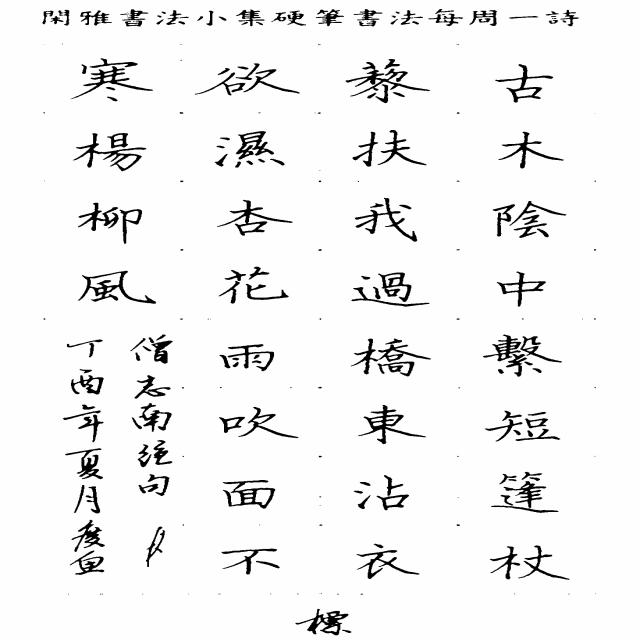 閑雅書法小集硬筆書法每周一詩
古木陰中繫短篷杖
藜扶我過橋東沾衣
欲濕杏花雨吹面不
寒楊柳風
僧志南絕句
丁酉年夏月